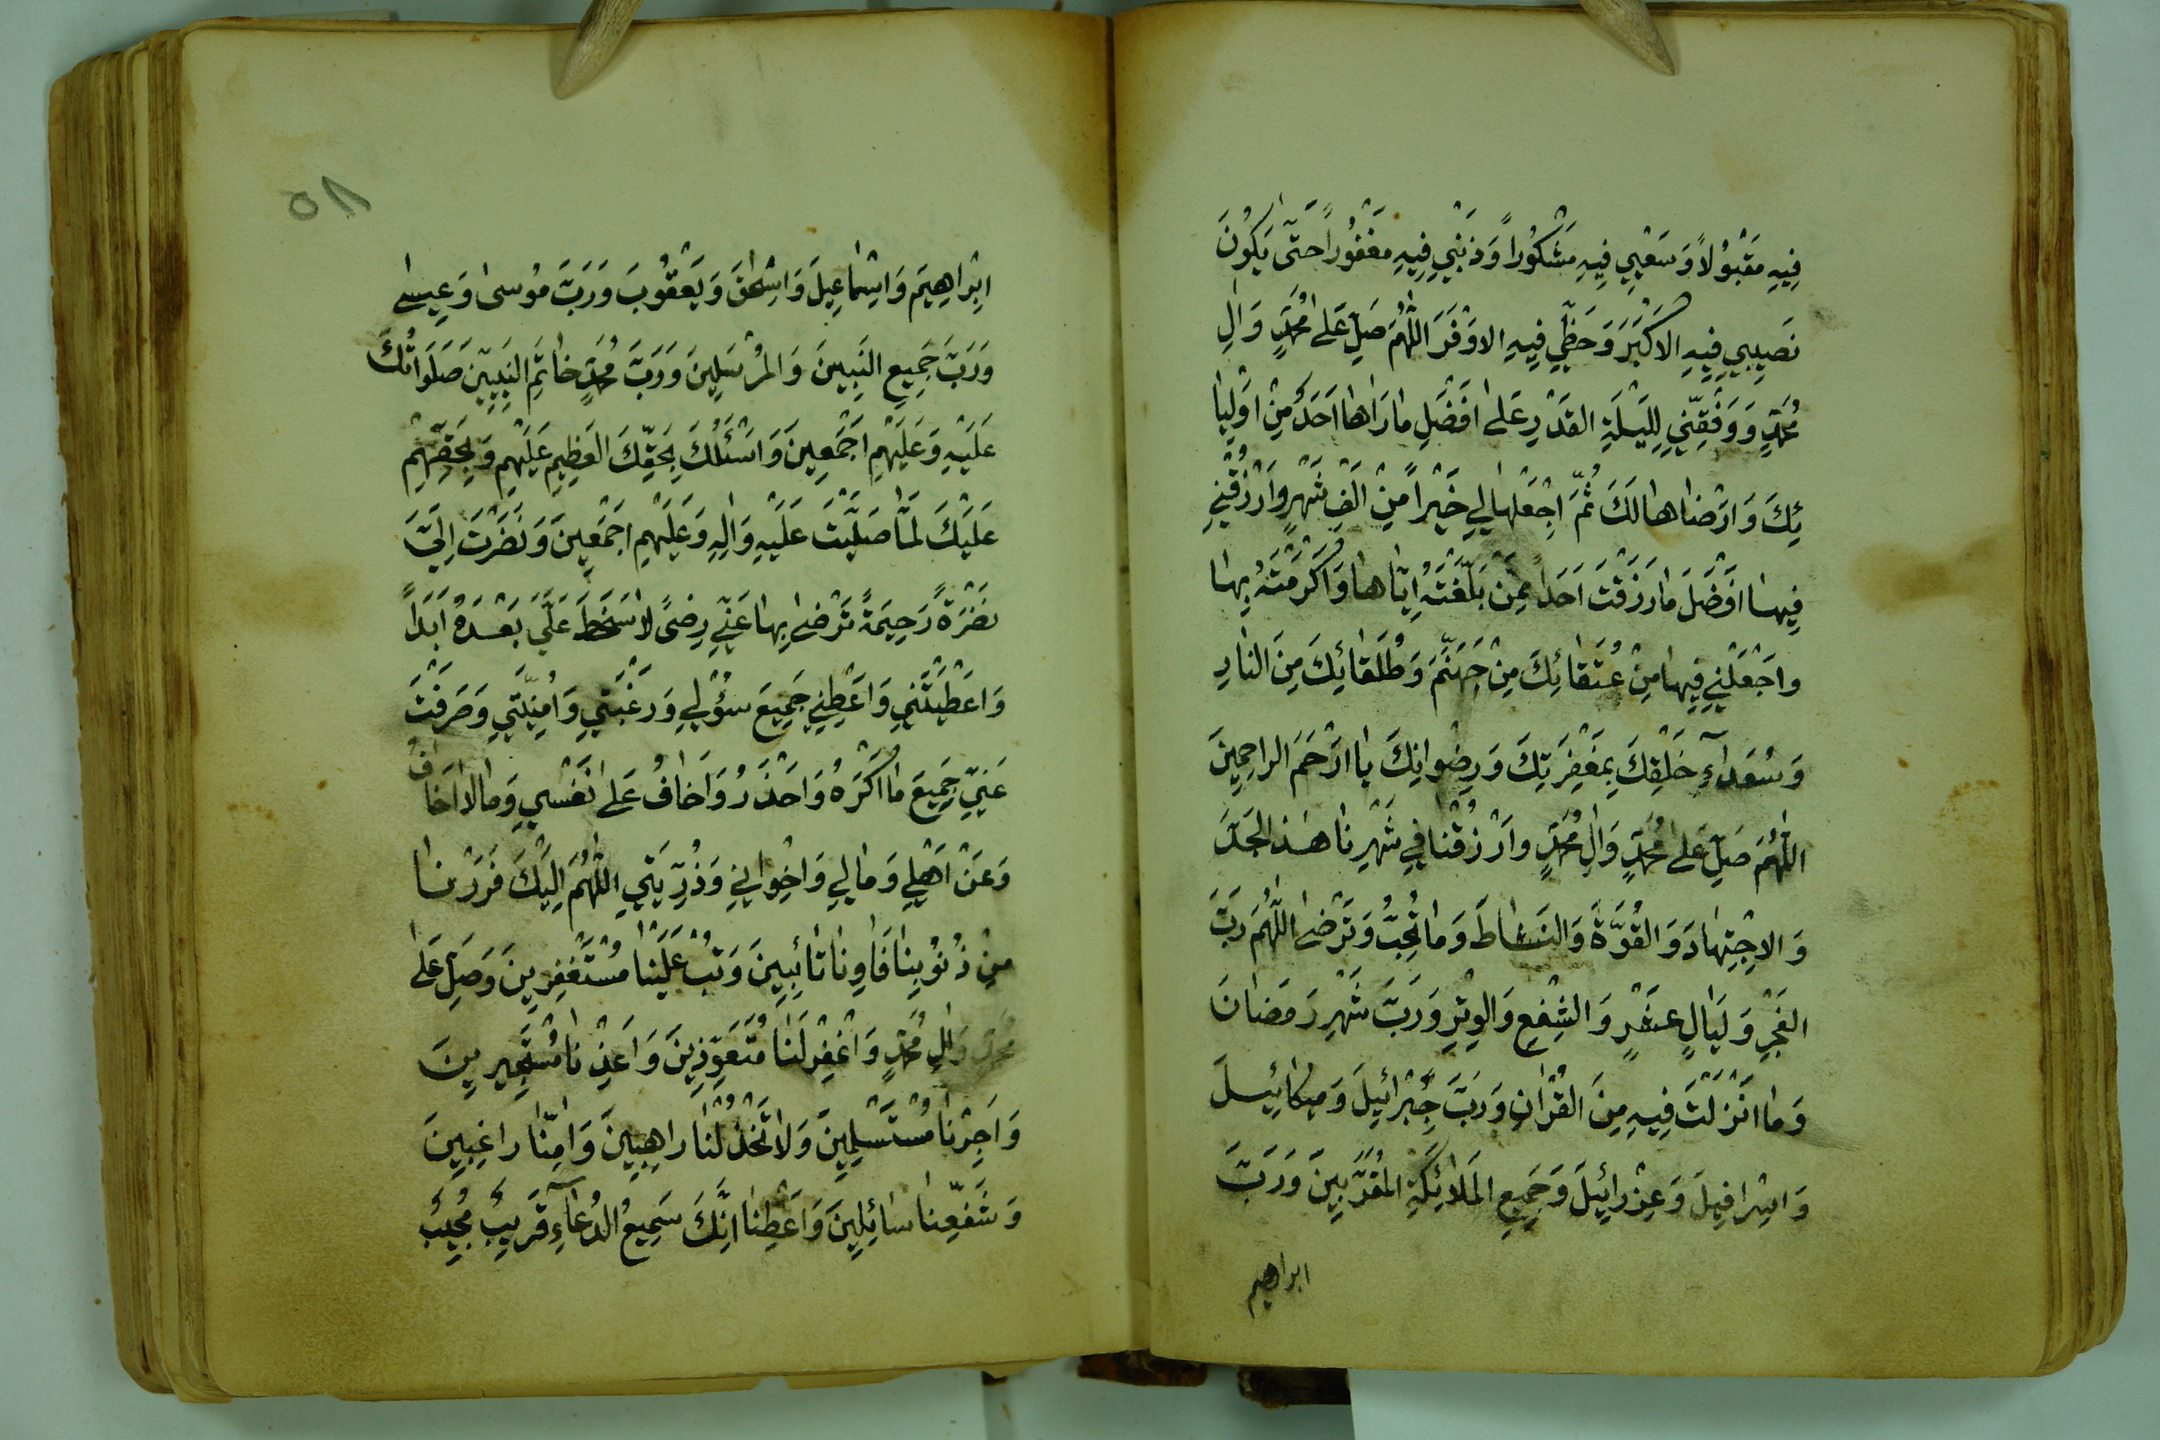 فِيهِ مَقْبُولاً وَسَعْيِي فِيهِ مَشْكُوراً وَذَنْبِي فِيهِ مَغْفُوراً حَتّٰى يَكُونَ
نَصِيبِي فِيهِ الاَكْبَرَ وَحَظِّي فِيهِ الاَوْفَرَ اللّٰهُمَّ صَلِّ عَلٰى مُحَمَّدٍ وَاٰلِ
مُحَمَّدٍ وَوَفِّقْنِي لِلَيْلَةِ القَدْرِ عَلٰى اَفْضَلِ مٰا رَاٰهٰا اَحَدٌ مِنْ اَوْلِيٰا
ئِكَ وَارْضٰاهٰا لَكَ ثُمَّ اجْعَلْهٰا لِي خَيْراً مِنْ اَلْفِ شَهْرٍ وَارْزُقْنِي
فِيهٰا اَفْضَلَ مٰا رَزَقْتَ اَحَداً مِمَّنْ بَلَّغْتَهُ اِيّٰاهٰا وَاَكْرَمْتَهُ بِهٰا
وَاجْعَلْنِي فِيهٰا مِنْ عُتَقٰائِكَ مِنْ جَهَنَّمَ وَطُلَقٰائِكَ مِنَ النّٰارِ
وَسُعَدٰاءِ خَلْقِكَ بِمَغْفِرَتِكَ وَرِضْوٰانِكَ يٰا اَرْحَمَ الرٰاحِمِينَ
اللّٰهُمَّ صَلِّ عَلٰى مُحَمَّدٍ وَاٰلِ مُحَمَّدٍ وَارْزُقْنٰا فِي شَهْرِنٰا هٰذَا الجَدَّ
وَالاِجْتِهٰادَ وَالقُوَّةَ وَالنَشٰاطَ وَمٰا تُحِبُّ وَتَرْضٰى اللّٰهُمَّ رَبَّ
الفَجْرِ وَلَيٰالٍ عَشْرٍ وَالشَفْعِ وَالوِتْرِ وَرَبَّ شَهْرِ رَمَضٰانَ
وَمٰا اَنْزَلْتَ فِيهِ مِنَ القُرْاٰنِ وَرَبَّ جِبْرَائِيلَ وَمِيكٰائِيلَ
وَاِسْرٰافِيلَ وَعِزْرٰائِيلَ وَجَمِيعِ المَلاٰئِكَةِ المُقَرَّبِينَ وَرَبَّ
ابراهيم
٥٨
اِبْرٰاهِيمَ وَاِسْمٰاعِيلَ وَاِسْحٰقَ وَيَعْقُوبَ وَرَبَّ مُوسٰى وَعِيسٰى
وَرَبَّ جَمِيعِ النَبِيينَ وَالمُرْسَلِينَ وَرَبَّ مُحَمَّدٍ خٰاتَمِ النَبِيِّينَ صَلَوٰاتُكَ
عَلَيْهِ وَعَلَيْهِمْ اَجْمَعِينَ وَاَسْئَلُكَ بِحَقِّكَ العَظِيمِ عَلَيْهِمْ وَبِحَقِّهِمْ
عَلَيْكَ لَمّٰا صَلَّيْتَ عَلَيْهِ وَاٰلِهِ وَعَلَيْهِمْ اَجْمَعِينَ وَنَضَرْتَ اِلَيَّ
نَضْرَةً رَحِيمَةً تَرْضٰى بِهٰا عَنِّي رِضىً لاٰ سَخَطَ عَلَيَّ بَعْدَهُ اَبَداً
وَاَعْطَيْتَنِي وَاَعْطِنِي جَمِيعَ سُؤْلِي وَرَغْبَتِي وَاُمْنِيَّتِي وَصَرَفْتَ
عَنِّي جَمِيعَ مٰا اَكْرَهُ وَاَحْذَرُ وَاَخٰافُ عَلٰى نَفْسِي وَمٰا لاٰ اَخَافُ
وَعَنْ اَهْلِي وَمٰالِي وَاِخْوٰانِي وَذُرِّيَتِي اللّٰهُمَّ اِلَيْكَ فَرَرْنٰا
مِنْ ذُنُوبِنٰا فَاٰوِنٰا تٰائِبِينَ وَتُبْ عَلَيْنٰا مُسْتَغْفِرِينَ وَصَلِّ عَلٰى
مُحَمَّدٍ وَاٰلِ مُحَمَّدٍ وَاغْفِرْ لَنٰا مُتَعَوِّذِينَ وَاَعِذْنٰا مُسْتَجِيرِينَ
وَاَجِرْنٰا مُسْتَسْلِمِينَ وَلاٰ تَخْذُلْنٰا رٰاهِبِينَ وَاٰمِنّٰا رٰاغِبِينَ
وَشَفِّعْنٰا سٰائِلِينَ وَاَعْطِنٰا اِنَّكَ سَمِيعُ الدُعٰاءِ قَرِيبٌ مُجِيبٌ